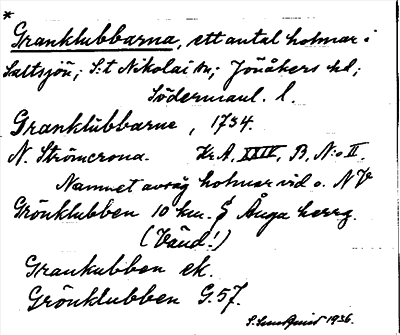 *
Granklubbarna, ett antal holmar i
Saltsjön; S:t Nikolai sn; Jönåkers hd;
Södermanl. l.
Granklubbarne, 1734.
N. Strömcrona. Kr.A. XXIV, B, N:o II.
Namnet avsåg holmar vid o. NV
Grönklubben 10 km. S Ånga herrg.
(Vänd!)
Grankubben ek.
Grönklubben G. 57.
S. 1936.